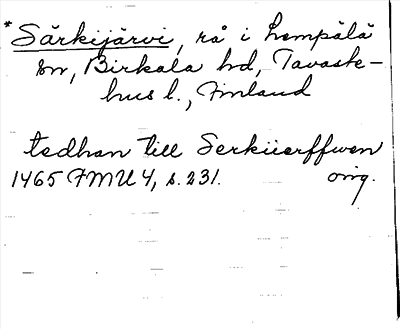 * Särkijärvi, rå i Lempälä
sn, Birkala hd, Tavaste-
hus l., Finland
tedhan till Serkiierffwen
1465 FMU 4, s. 231. orig.